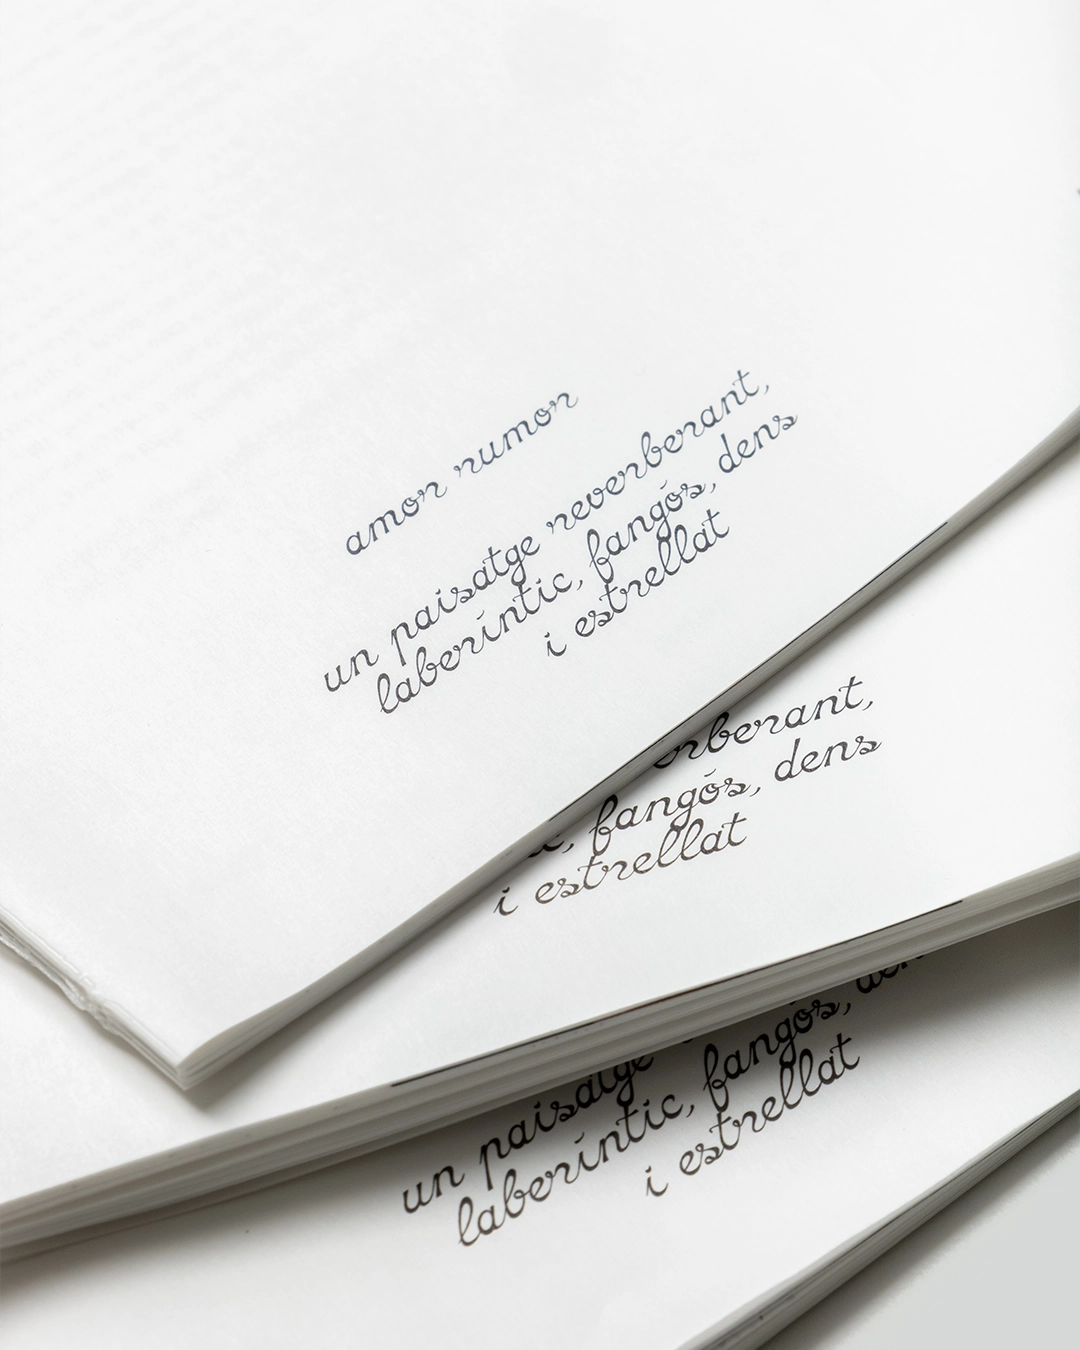 amor rumor
un paisatge reverberant,
laberíntic, fangós, dens
i estrellat
rberant,
fangós, dens
i estrellat
un paisatge
laberíntic, fangós, den
i estrellat